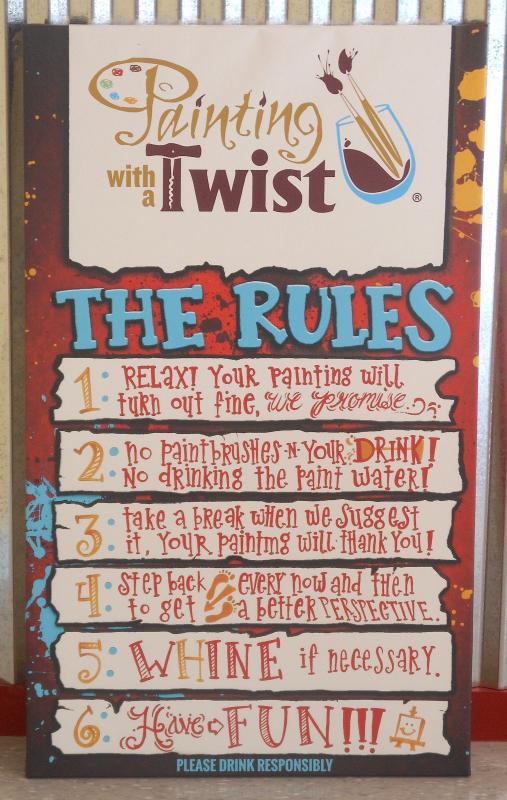 Painting
with a Twist®
THE RULES
1: RELAX! Your painting will
turn out fine, we promise.
2: no paintbrushes-n-your DRINK!
No drinking the paint water!
3: take a break when we suggest
it, your painting will thank you!
4: step back every now and then
to get a better PERSPECTIVE.
5: WHINE if necessary.
6: Have FUN!!!
PLEASE DRINK RESPONSIBLY